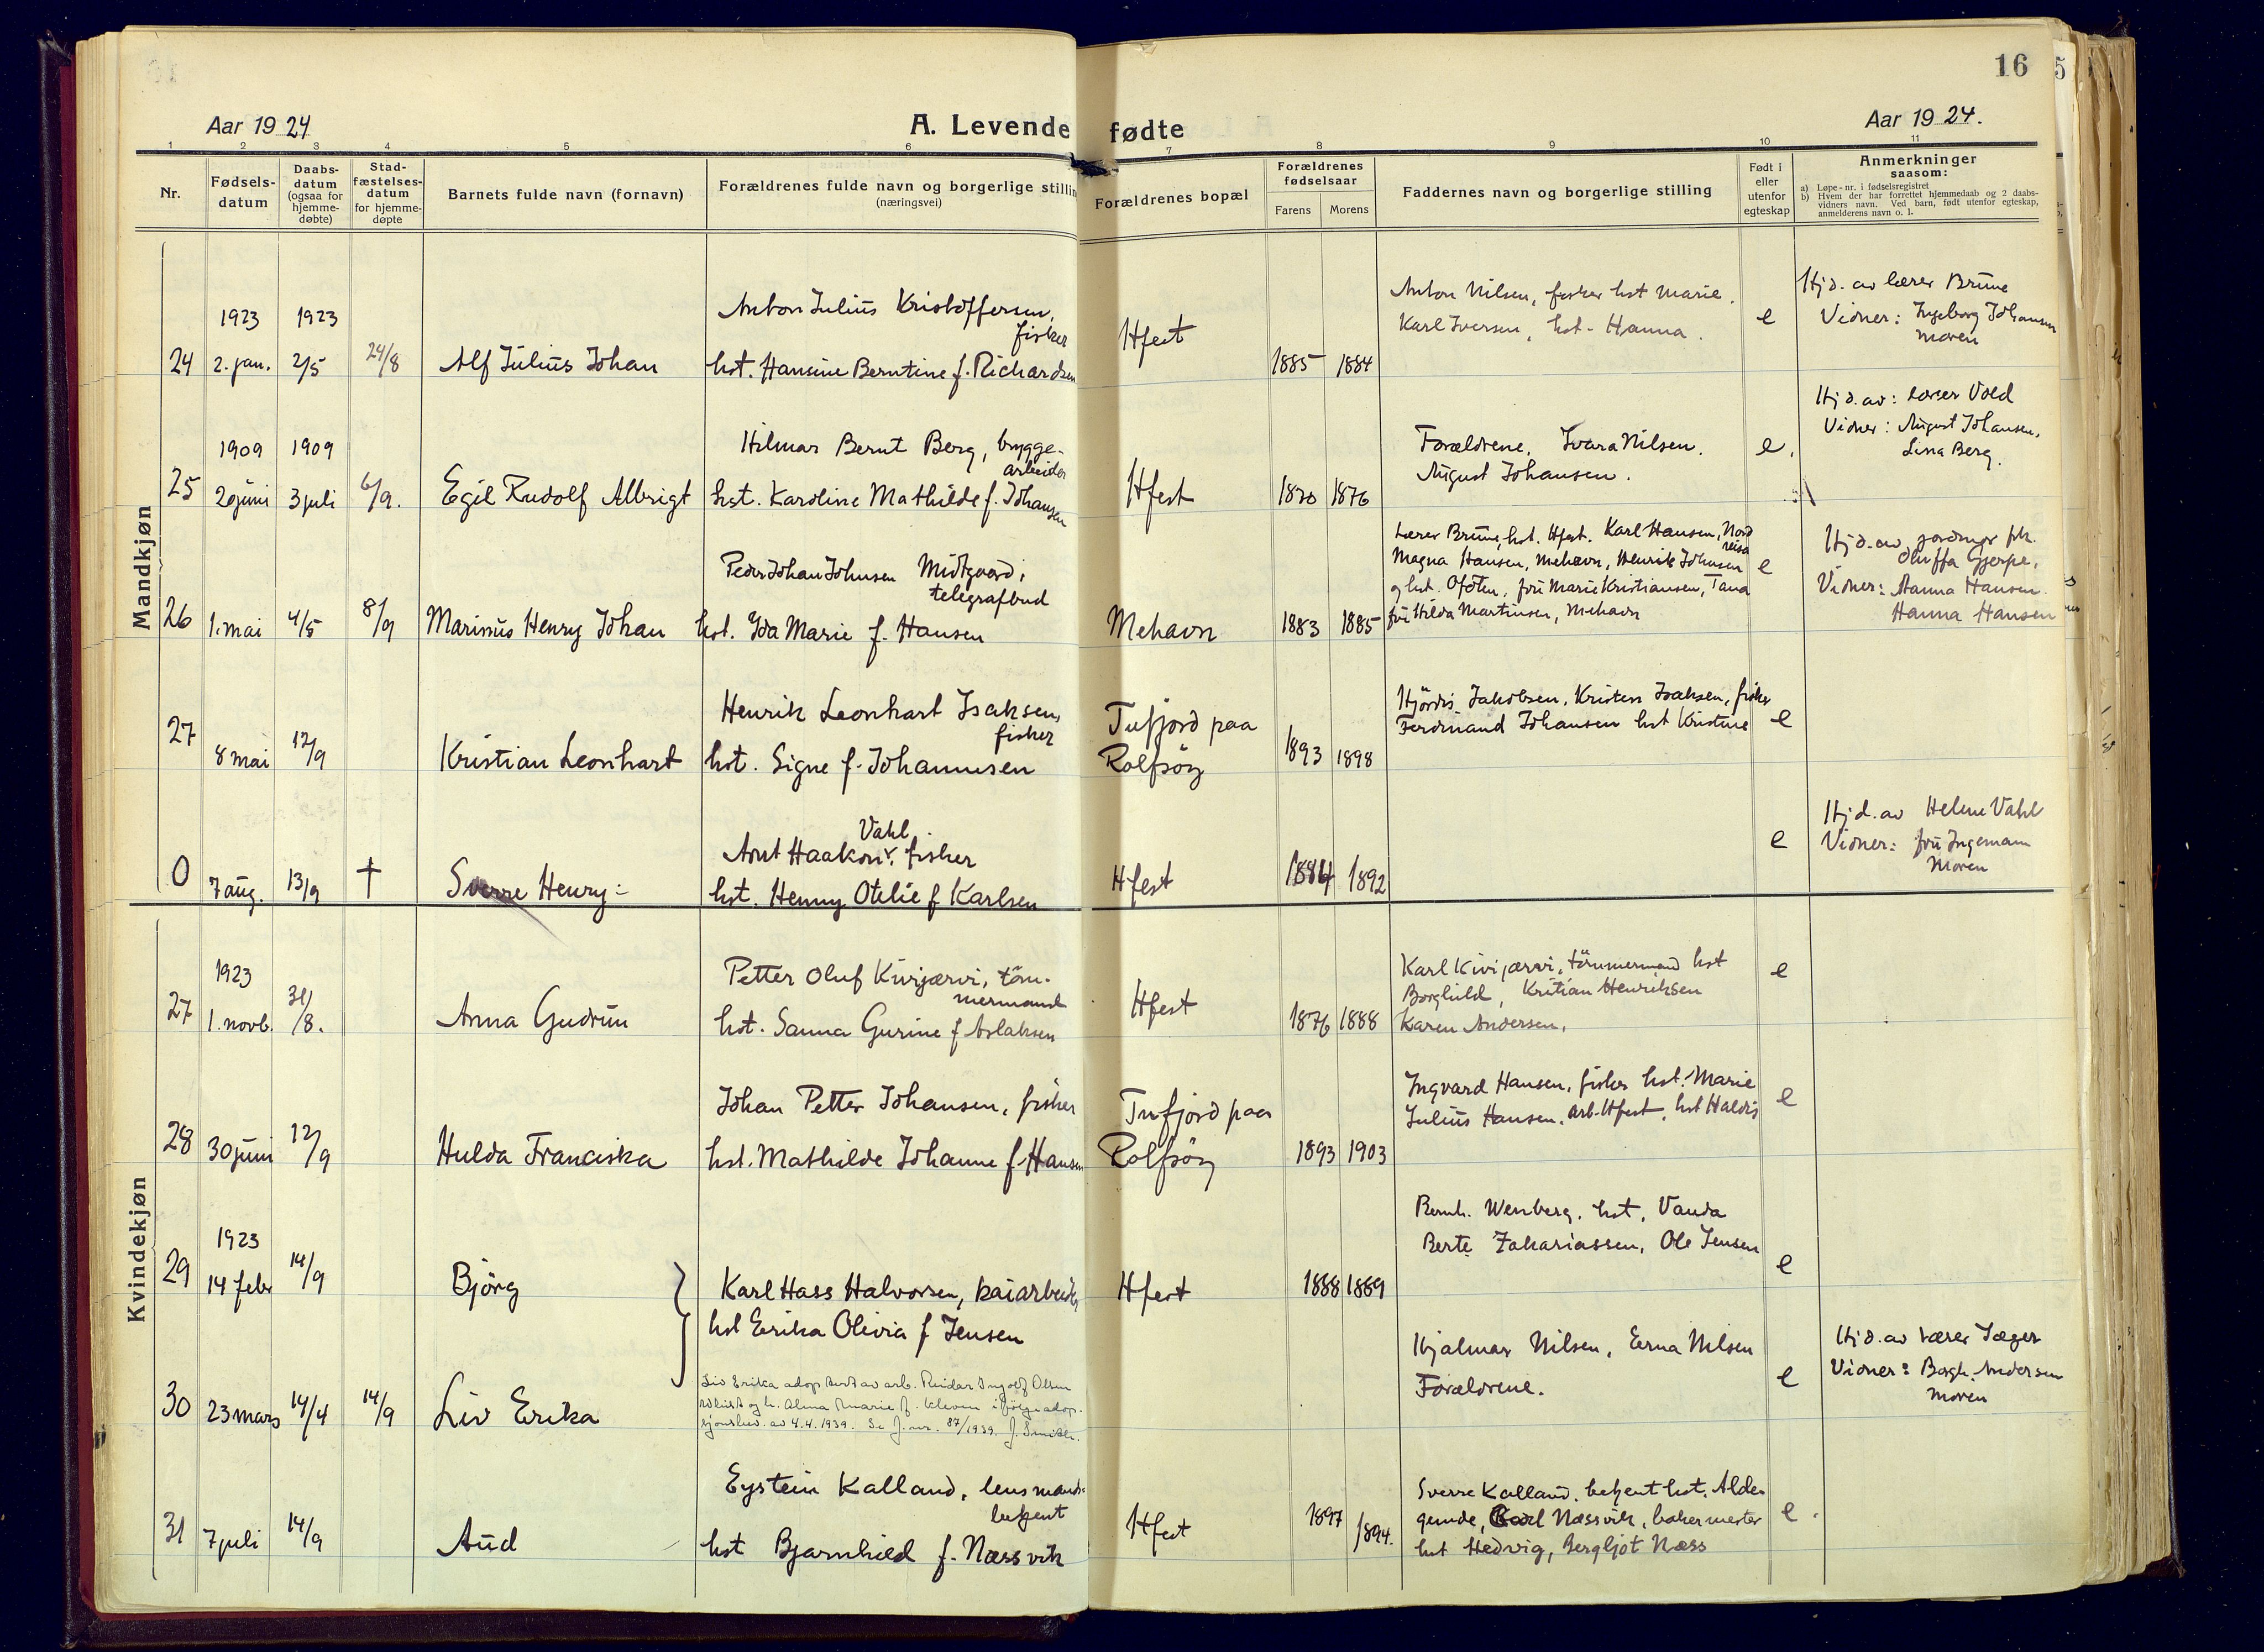 16
Aar 1924
A. Levende fødte
Aar 1924.
1 2 3 4 5 6 7 8 9 10 11
Nr.
Fødsels-
datum
Daabs-
datum
(ogsaa for
hjemme-
døbte)
Stad-
fæstelses-
datum
for hjemme-
døpte
Barnets fulde navn (fornavn)
Forældrenes fulde navn og borgerlige stillin
(næringsvei)
Forældrenes bopæl
Forældrenes
fødselsaar
Farens Morens
Faddernes navn og borgerlige stilling
Født i
eller
utenfor
egteskap
Anmerkninger
saasom:
a) Løpe-nr. i fødselsregistret
b) Hvem der har forrettet hjemmedaab og 2 daabs-
vidners navn. Ved barn, født utenfor egteskap,
anmelderens navn o. l.
Mandkjøn
24
1923
2. jan.
1923
2/5
24/8
Alf Julius Johan
Anton Julius Kristoffersen,
fisker
hst. Hansine Berntine f. Richardsen
Hfest
1885 1884
Anton Nilsen, fisker hst Marie.
Karl Iversen, hst. Hanna.
e
Hjd. av lærer Brune
Vidner: Ingeborg Johansen
moren
25
1909
20 juni
1909
3 juli
6/9.
Egil Rudolf Albrigt
Hilmar Bernt Berg, brygge-
arbeider
hst. Karoline Mathilde f. Johansen
Hfest
1870 1876
Forældrene, Ivara Nilsen.
August Johansen.
e.
Hjd. av: lærer Vold
Vidner: August Johansen,
Lina Berg.
26
1. mai
4/5
8/9
Marinus Henry Johan
Peder Johan Johnsen Midtgaard,
telegrafbud
hst. Ida Marie f. Hansen
Mehavn
1883 1885
Lærer Brune, hst. Hfest. Karl Hansen, Nord
reisa
Magna Hansen, Mehavn, Henrik Johnsen
og hst. Ofoten, fru Marie Kristiansen, Tana
fru Hilda Martinsen, Mehavn
e
Hjd. av jordmor frk.
Oluffa Gjerpe,
Vidner: Hanna Hansen.
Hanna Hansen
27
8 mai
12/9
Kristian Leonhart
Henrik Leonhart Isaksen,
fisker
hst. Signe f. Johannesen
Tufjord paa
Rolfsöy
1893 1898
Hjördis Jakobsen, Kristen Isaksen, fisker
Ferdinand Johansen hst Kristine
e
0
7 aug.
13/9
†
Sverre Henry
Vahl
Arnt Haakon, fisker
hst. Henny Otelie f Karlsen
Hfest
1884 1892
e
Hjd. av Helene Vahl
Vidner: fru Ingemann
Moren
Kvindekjøn
27
1923
1. novb.
31/8.
Anna Gudrun
Petter Oluf Kivijærvi, töm-
mermand
hst. Sanna Gurine f Aslaksen
Hfest
1876 1888
Karl Kivijærvi, tömmermand hst
Borghild, Kristian Henriksen
Karen Andersen,
e
28
30 juni
12/9
Hulda Franciska
Johan Petter Johansen, fisker
hst. Mathilde Johanne f. Hansen
Tufjord paa
Rolfsöy
1893 1903
Ingvard Hansen, fisker hst. Marie
Julius Hansen, arb. Hfest, hst Haldis
e
29
1923
14 febr
14/9
Björg
Karl Hass Halvorsen, kaiarbeider
hst Erika Olivia f Jensen
Hfest
1888 1889
Bernh. Wenberg, hst. Vanda
Berte Zakariassen, Ole Jensen
e
30
23 mars
14/4
14/9
Liv Erika
Liv Erika adoptert av arb. Reidar Ingolf Olsen
og h. Alma Marie f. Kleven ifölge adop-
sjonsbev. av 4.4.1939. Se J.nr. 87/1939.
Hjalmar Nilsen, Erna Nilsen
Forældrene.
e
Hjd. av lærer Jæger
Vidner: Borgh. Andersen
Moren
31
7 juli
14/9
Aud
Eystein Kalland, lensmands-
betjent
hst Bjarnhild f. Næssvik
Hfest
1897 1894.
Sverre Kalland, betjent hst. Alder
gunde, Karl Næssvik, bakermester
hst Hedvig, Bergljot Næss
e.